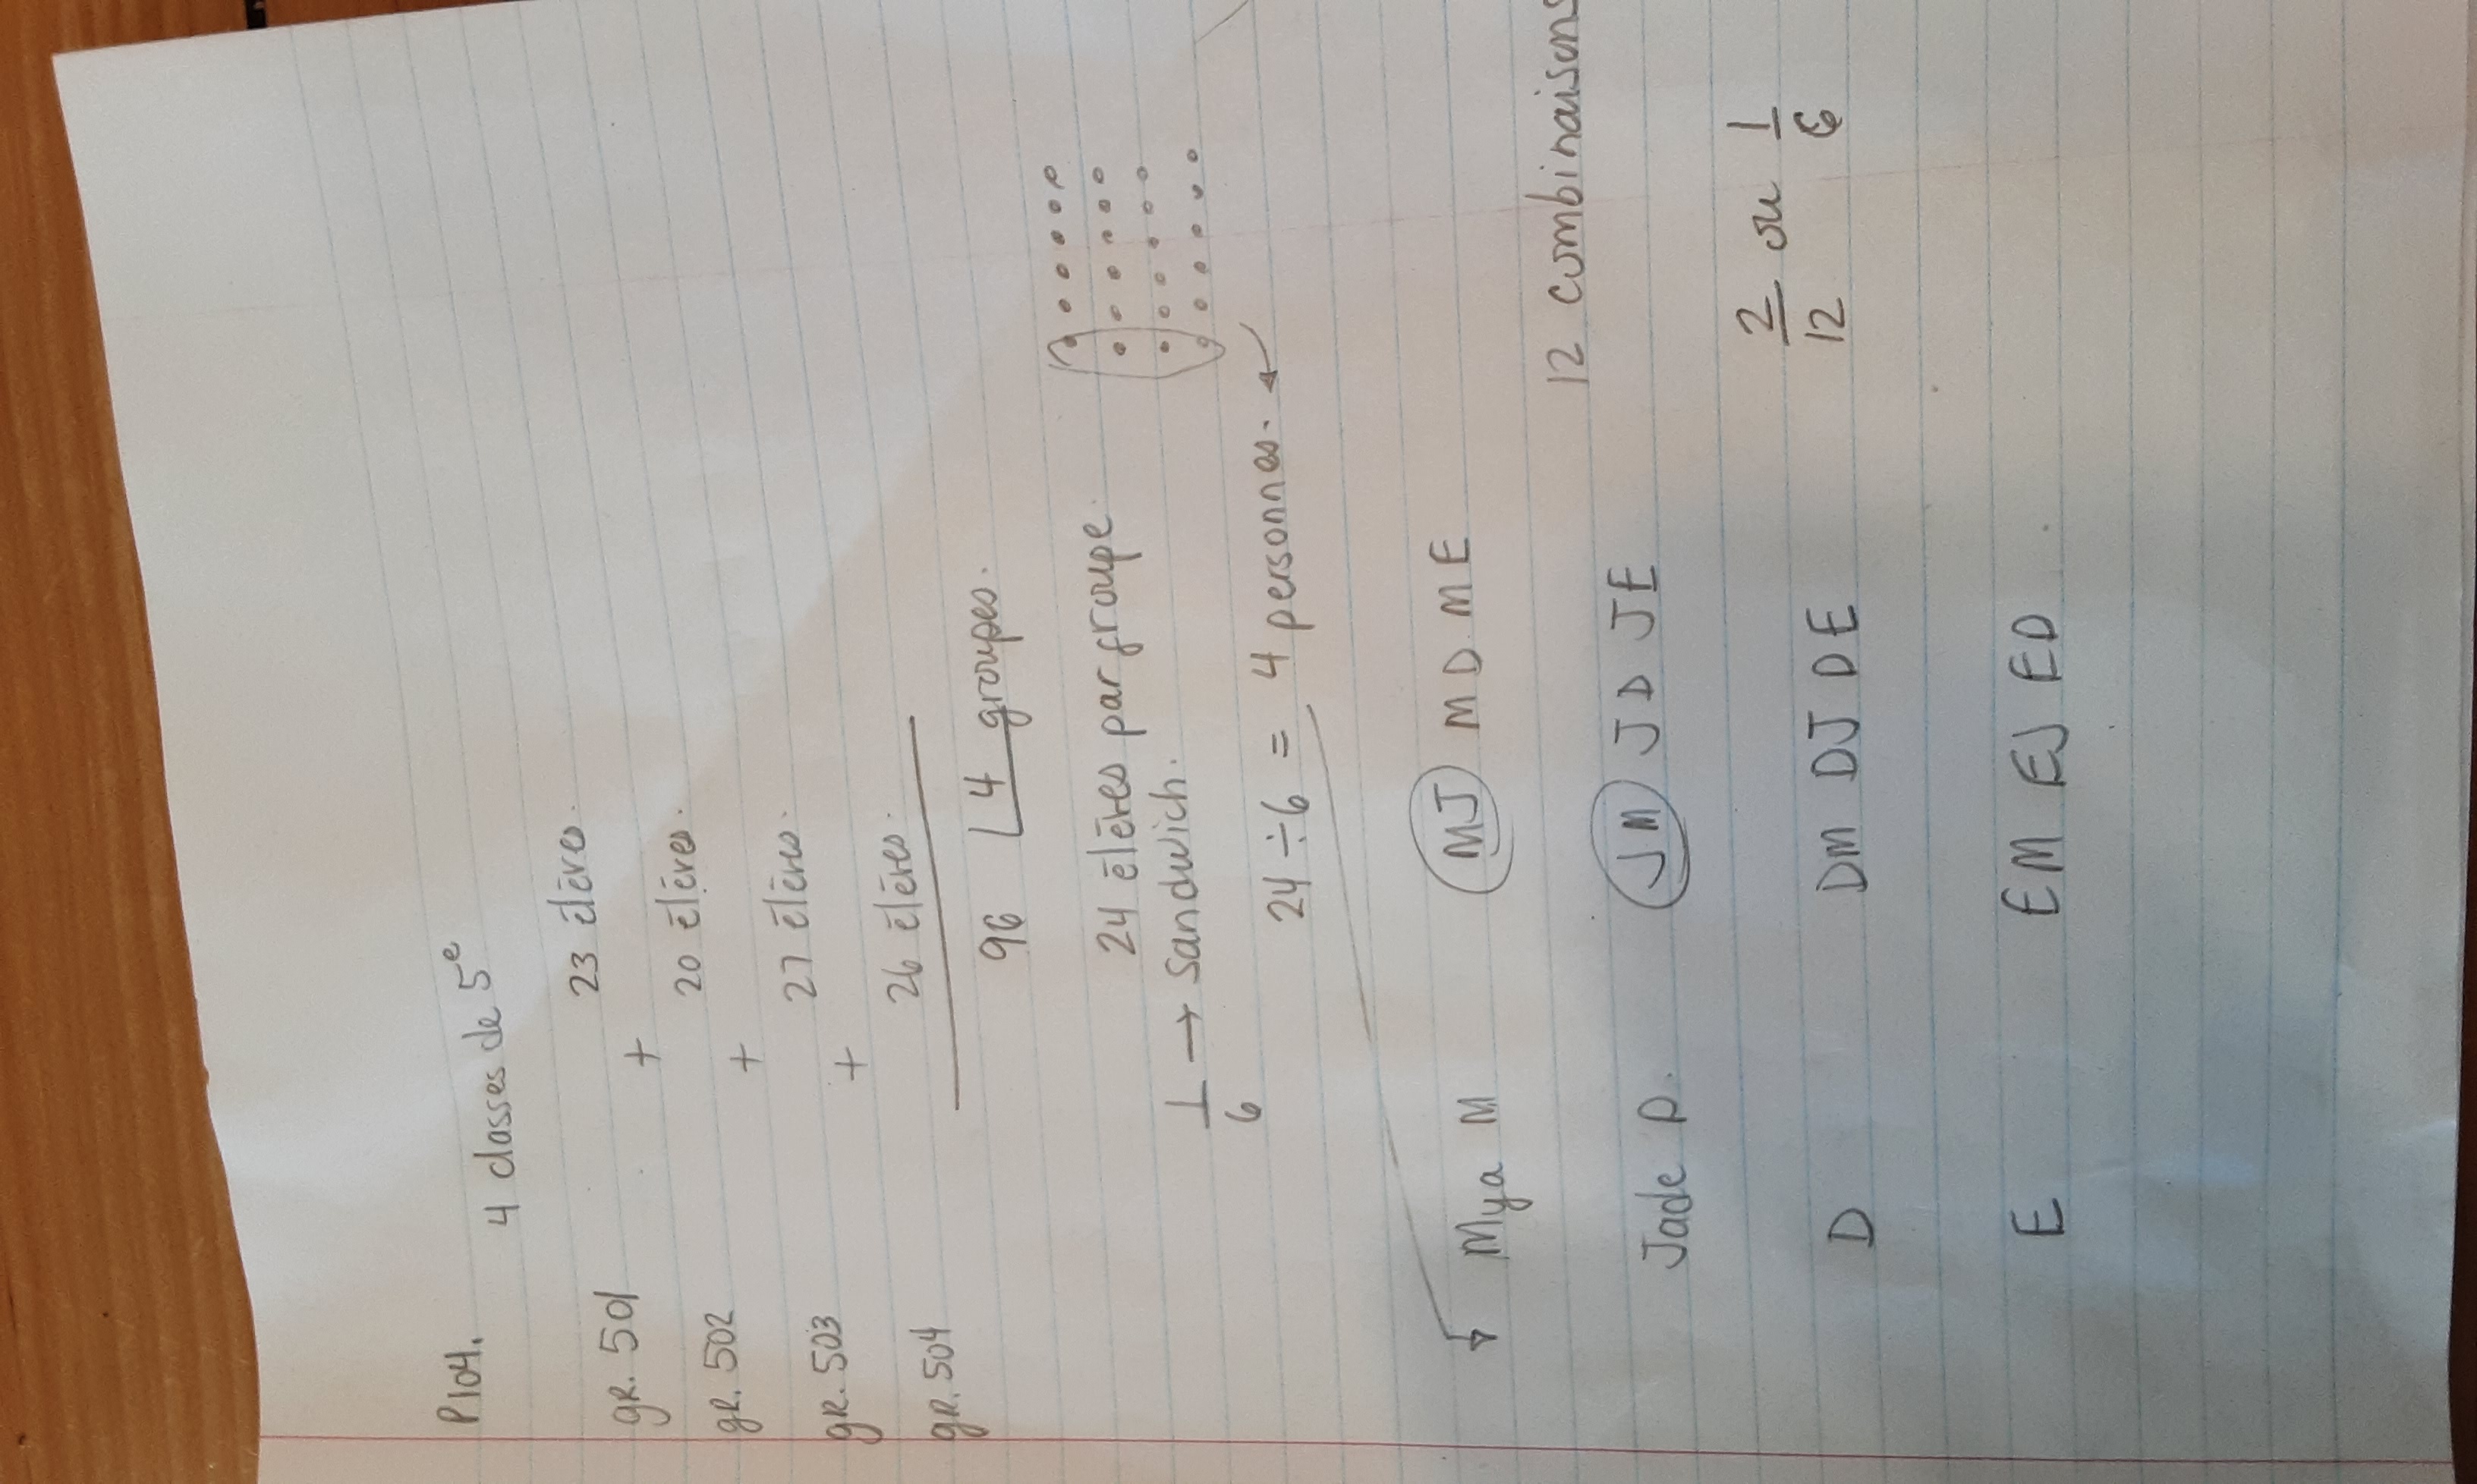 P104.
4 classes de 5e
gr. 501 23 élèves.
+
gr. 502 20 élèves.
+
gr. 503 27 élèves.
+
gr. 504 26 élèves.
96 4 groupes.
24 élèves par groupe.
1/6 → Sandwich.
24 ÷ 6 = 4 personnes.
Mya M MJ MD ME
12 combinaisons
Jade P. JM JD JE
2/12 ou 1/6
D DM DJ DE
E EM EJ ED